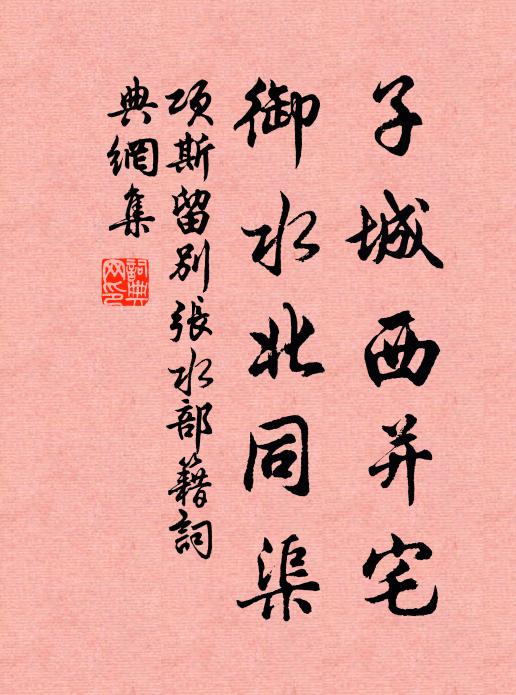 子城西并宅
御水北同渠
項斯留别張水部籍詞
典網集
詞典网印